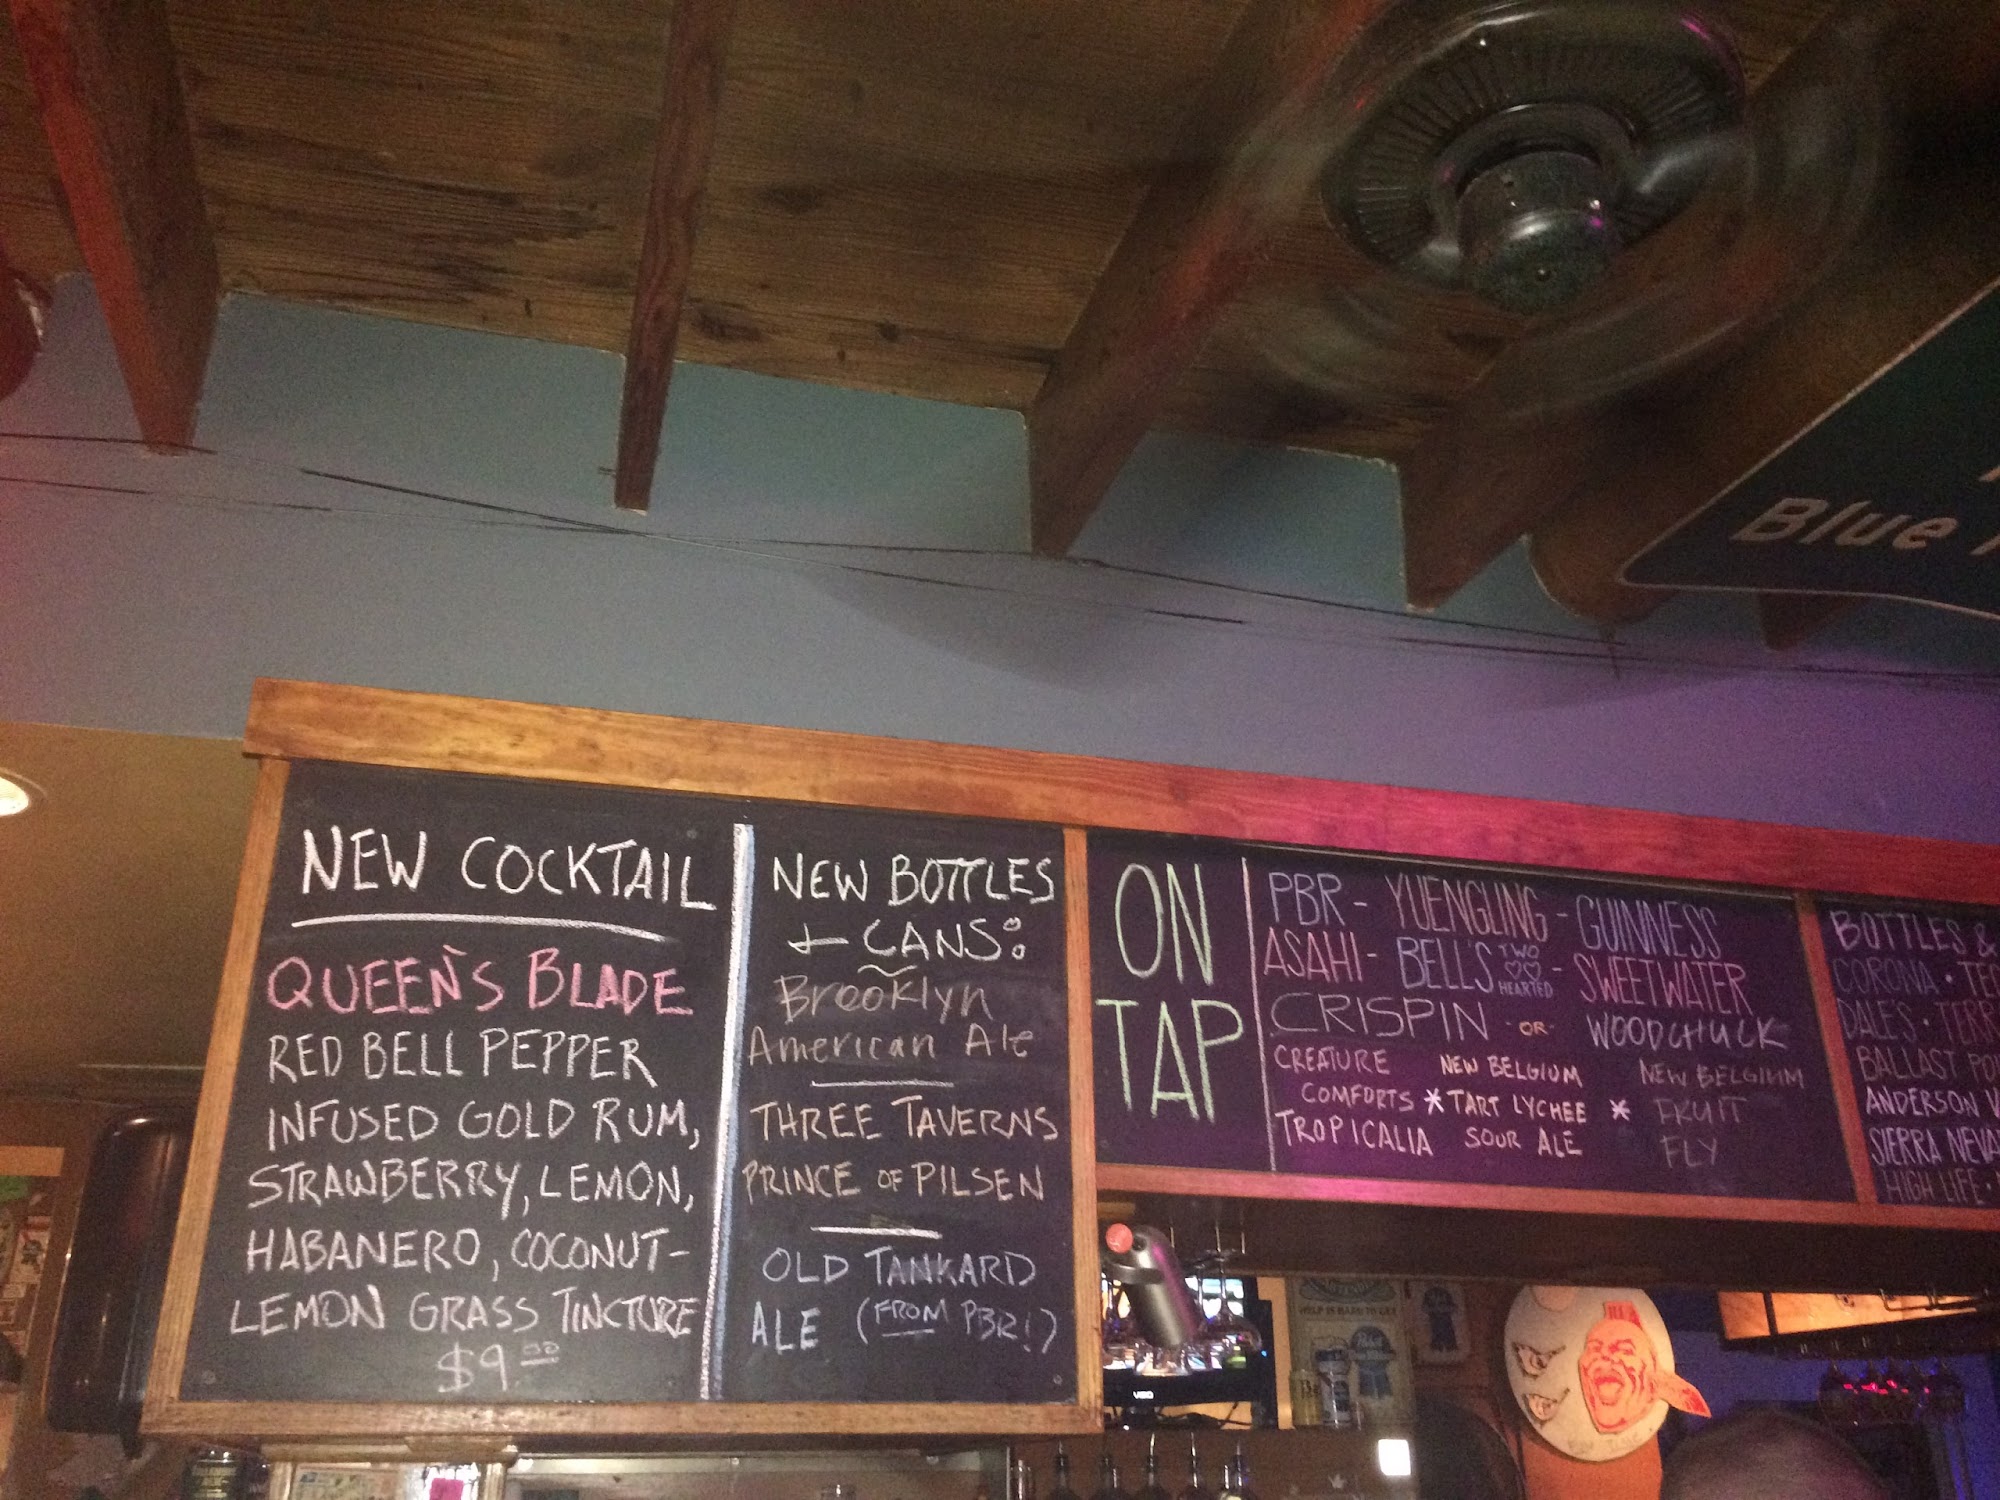 Blue
NEW COCKTAIL
QUEEN'S BLADE
RED BELL PEPPER
INFUSED GOLD RUM,
STRAWBERRY, LEMON,
HABANERO, COCONUT-
LEMON GRASS TINCTURE
$9.00
NEW BOTTLES
+ CANS:
Brooklyn
American Ale
THREE TAVERNS
PRINCE OF PILSEN
OLD TANKARD
ALE (FROM PBR!)
ON
TAP
PBR - YUENGLING - GUINNESS
ASAHI - BELL'S TWO HEARTED - SWEETWATER
CRISPIN -OR- WOODCHUCK
CREATURE
COMFORTS *
TROPICALIA
NEW BELGIUM
TART LYCHEE *
SOUR ALE
NEW BELGIUM
FRUIT
FLY
BOTTLES &
CORONA •
DALE'S •
BALLAST
ANDERSON
SIERRA
HIGH LIFE •
HELP IS HARD TO GET
Pabst
VIZIO